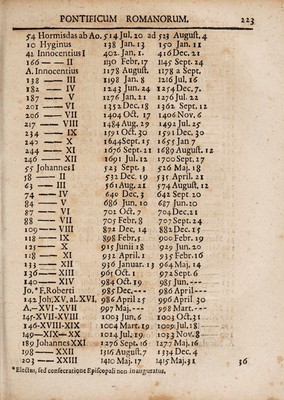 PONTIFICUM ROMANORUM. 223
54 Hormisdas ab Ao. 514 Jul. 20 ad 523 Auguſt. 4
10 Hyginus 138 Jan. 13 150 Jan. 11
41 Innocentius I 402 Jan. 1 416 Dec. 21
166 — — II 1130 Febr. 17 1145 Sept. 24
A. Innocentius 1178 Auguſt. 1178 a Sept.
138 — — III 1198 Jan. 8 1216 Jul. 16
182 — — IV 1243 Jun. 24 1254 Dec. 7.
187 — — V 1276 Jan. 21 1276 Jul. 22
201 — — VI 1352 Dec. 18 1362 Sept. 12
206 — — VII 1404 Oct. 17 1406 Nov. 6
217 — — VIII 1484 Aug. 29 1492 Jul. 25
234 — — IX 1591 Oct. 30 1591 Dec. 30
240 — — X 1644 Sept. 15 1655 Jan. 7
244 — — XI 1676 Sept. 21 1689 Auguſt. 12
246 — — XII 1691 Jul. 12 1700 Sept. 27
55 Johannes I 523 Sept. 526 Maj. 18
58 — — II 532 Dec. 19 535 April. 21
63 — — III 561 Aug. 21 574 Auguſt. 12
74 — — IV 640 Dec. 3 642 Sept. 20
84 — — V 686 Jun. 10 687 Jun. 10
87 — — VI 702 Oct. 7 704 Dec. 21
88 — — VII 705 Febr. 8 707 Sept. 24
109 — — VIII 872 Dec. 14 882 Dec. 15
118 — — IX 898 Febr. 1 900 Febr. 19
125 — — X 915 Junii 18 929 Jun. 20
128 — — XI 932 April. 1 935 Febr. 16
133 — — XII 956 Januar. 13 964 Maj. 14
136 — — XIII 965 Oct. 1 972 Sept. 6
140 — — XIV 984 Oct. 19 985 Jun. — —
Jo. * F. Roberti 985 Dec. — — 986 April — —
142 Joh; XV, al. XVI, 986 April 25 996 April 30
A. — XVI-XVII 997 Maj. — — 998 Mart. — —
145 — XVII-XVIII 1003 Jun. 6 1003 Oct. 31
146 — XVIII-XIX 1004 Mart. 19 1009 Jul. 18 — —
149 — XIX — XX 1024 Jul. 19 1033 Nov. 8
189 Johannes XXI 1276 Sept. 16 1277 Maj. 16
198 — — XXII 1316 Auguſt. 7 1334 Dec. 4
203 — — XXIII 1410 Maj. 17 1415 Maj. 31 36
* Electus, ſed conſecratione Epiſcopali non inauguratus.